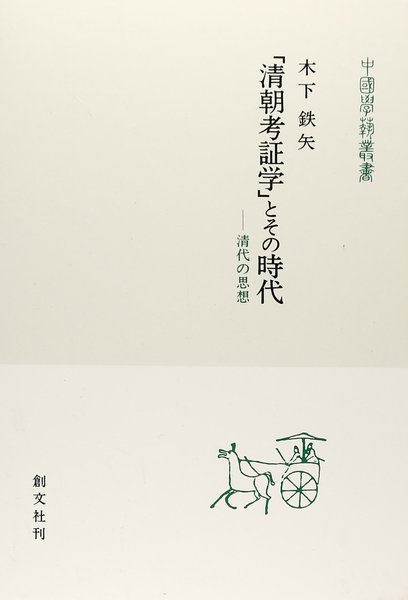 中國學藝叢書
木下 鉄矢
「清朝考証学」とその時代
──清代の思想
創文社刊